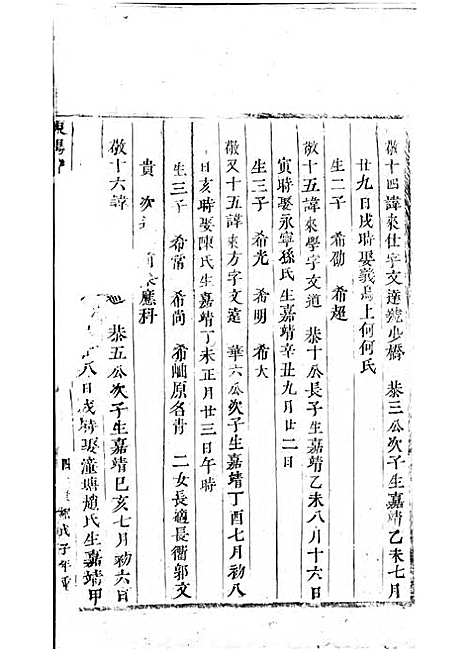 敬十四諱來仕字文達號步橋 恭三公次子生嘉靖乙未七月
廿九日戌時娶義烏上何何氏
生二子 希勛 希超
敬十五諱來學字文道 恭十公長子生嘉靖乙未八月十六日
寅時娶永寧孫氏生嘉靖辛丑九月廿二日
生三子 希光 希明 希大
敬又十五諱來方字文遠 華六公次子生嘉靖丁酉七月初八
日亥時娶陳氏生嘉靖丁未正月廿三日午時
生三子 希甯 希尚 希岫原名肯 二女長適長衢郭文
貴 次 應科
敬十六諱 恭五公次子生嘉靖己亥七月初六日
八日戌時娶潼塘趙氏生嘉靖甲
東陽
戊子年重